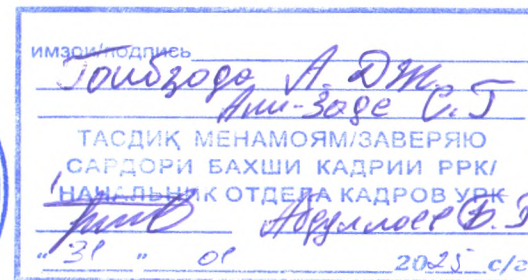 имзои/подпись
Гоибзода А. ДЖ.
Али-Заде С.Г
ТАСДИҚ МЕНАМОЯМ/ЗАВЕРЯЮ
САРДОРИ БАХШИ КАДРИИ РРК/
НАЧАЛЬНИК ОТДЕЛА КАДРОВ УРК
Абдуллоев Б.
"31" 01 2025 с/г